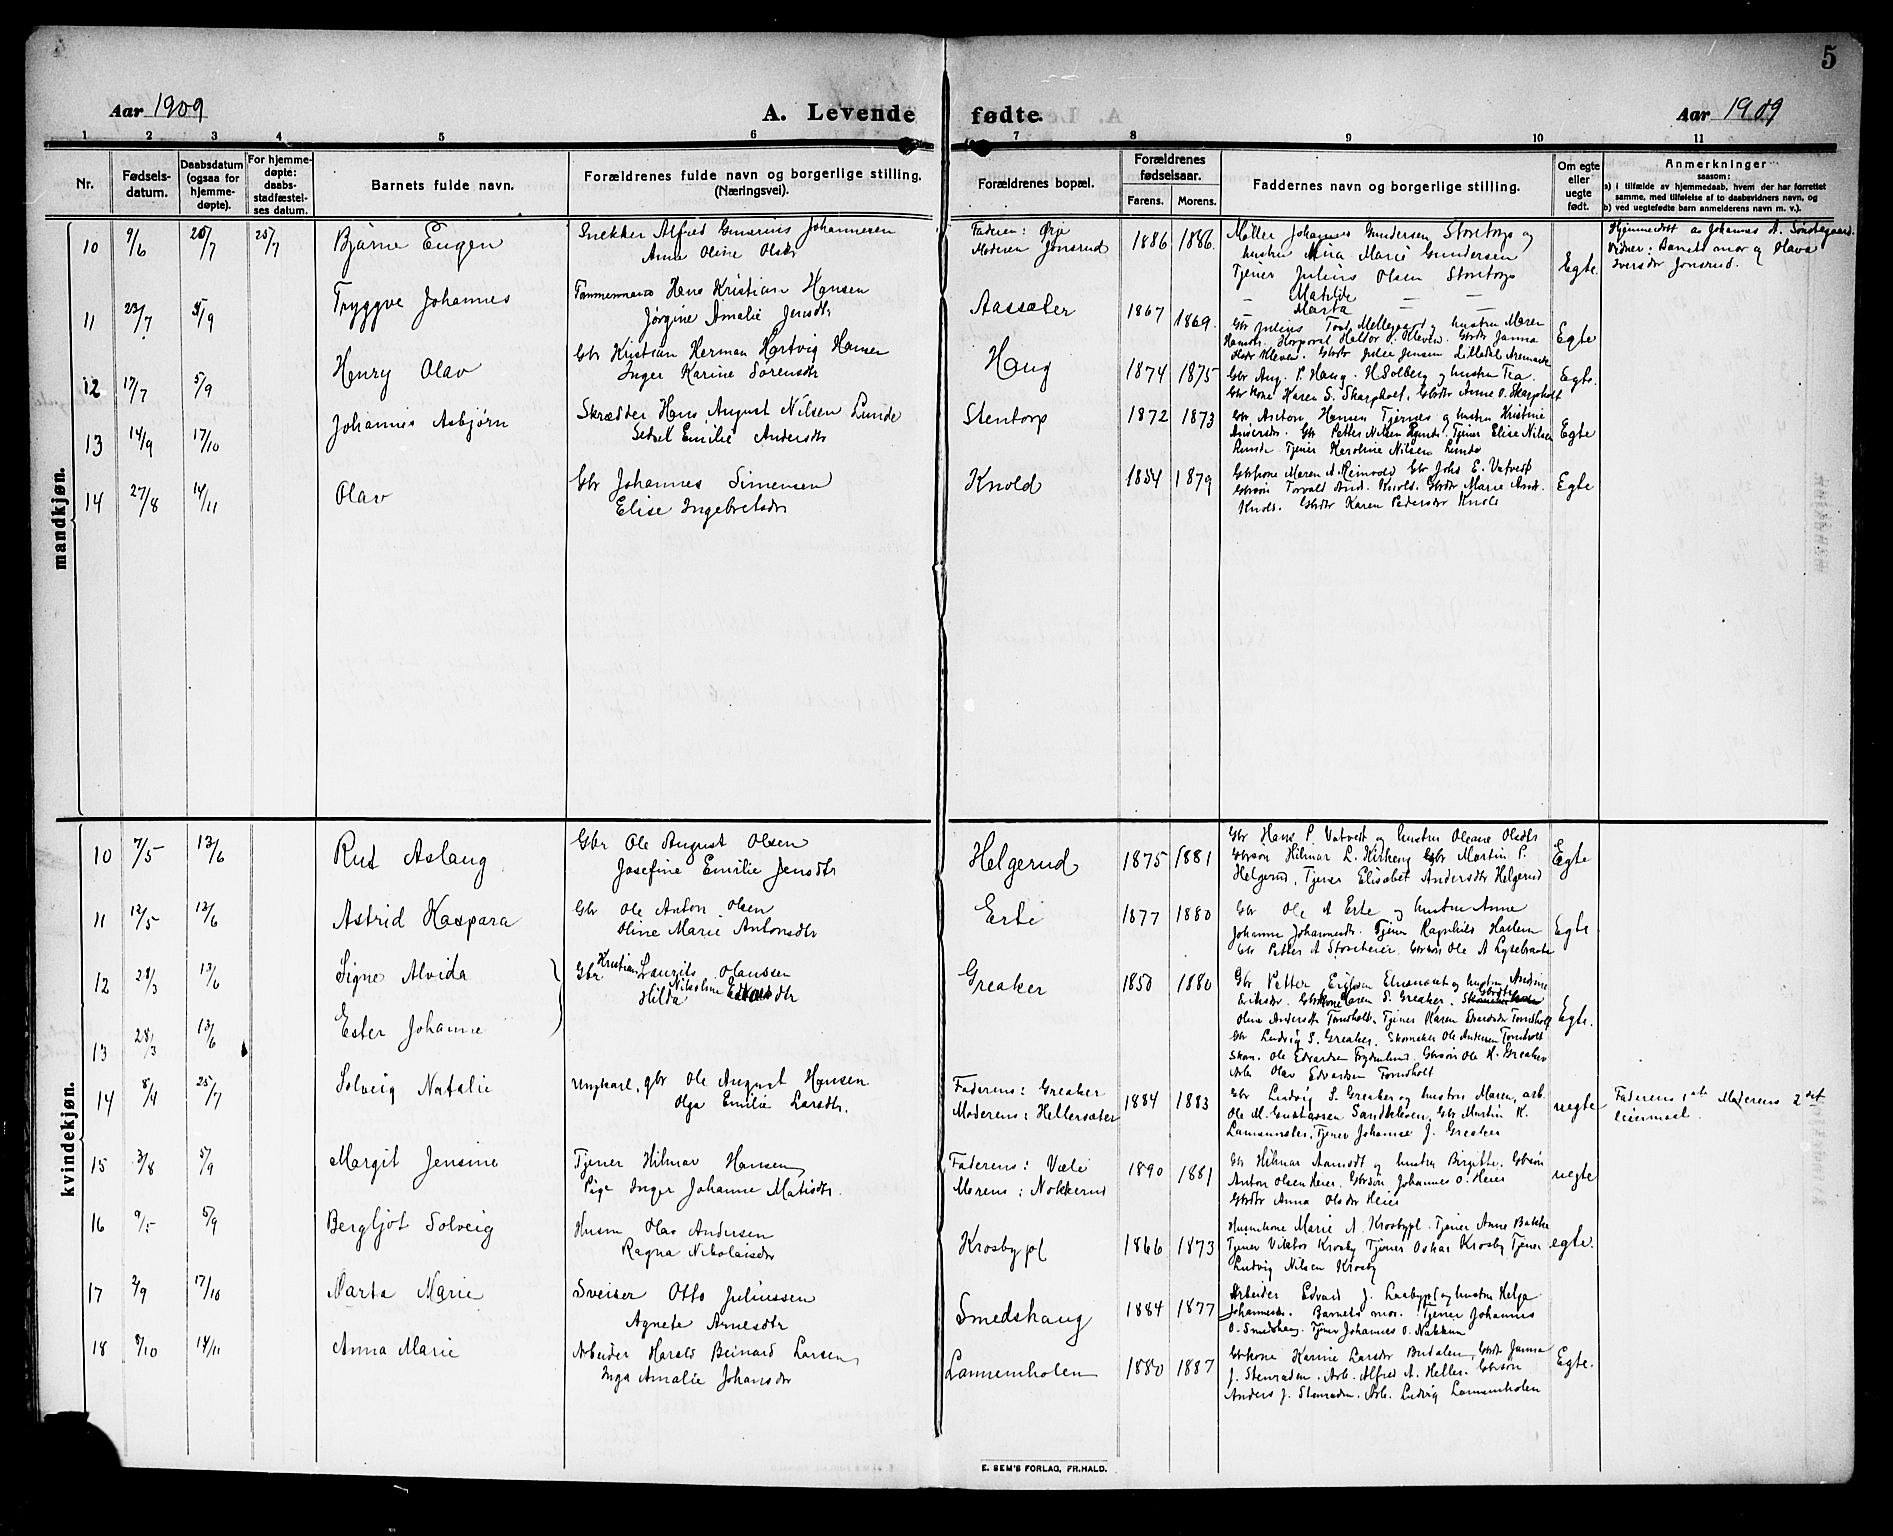 5
Aar 1909
A. Levende fødte.
Aar 1909
1 2 3 4 5 6 7 8 9 10 11
Nr.
Fødsels-
datum.
Daabsdatum
(ogsaa for
hjemme-
døpte).
For hjemme-
døpte:
daabs-
stadfæstel-
ses datum.
Barnets fulde navn.
Forældrenes fulde navn og borgerlige stilling.
(Næringsvei).
Forældrenes bopæl.
Forældrenes
fødselsaar.
Farens. Morens.
Faddernes navn og borgerlige stilling.
Om egte
eller
uegte
født.
Anmerkninger
saasom:
a) i tilfælde av hjemmedaab, hvem der har forrettet
samme, med tilføielse af to daabsvidners navn, og
b) ved uegtefødte barn anmelderens navn m. v.).
mandkjøn.
10 9/6 25/7 25/7 Bjarne Eugen
Snekker Alfred Gunerius Johannesen
Anna Oline Olsdr
Faderen: Ørje
Moderen Jonsrud
1886 1886.
Møller Johannes Gundersen Stentorp og
hustru Mina Marie Gundersen
Tjener Julius Olsen Stentorp
— Matilde — —
— Marta — —
Egte.
Hjemmedøbt av Johannes A. Søndegaard.
Vidner: Barnets mor og Olava
Iversdr Jonsrud.
11 22/7 5/9 Tryggve Johannes
Tømmermand Hans Kristian Hansen
Jørgine Amalie Jensdtr
Aassæter
1867 1869.
Gbr Julius Mellegaard og hustru Maren
Hansdtr. Korporal Haldor O. Kleven. Gbrdtr Janna
Olsdr Kleven. Gbrdtr Julie Jensen Lilledal Aremark
Egte
12 17/7 5/9 Henry Olav
Gbr Kristian Herman Hartvig Hansen
Inger Karine Sørensdtr
Haug
1874 1875
Gbr Aug. P. Haug. H. Solberg og hustru Tea.
Gbrkone Karen S. Skarpholt. Gbrdtr Anne O. Skarpholt
Egte.
13 14/9 17/10 Johannes Asbjørn
Skrædder Hans August Nilsen Lunde
Sedsel Emilie Andersdtr
Stentorp
1872 1873
Gbr. Anton Hansen Tjernes og hustru Kristine
Andersdr. Gbr Petter Nilsen Lunde. Tjener Elise Nilsen
Lunde Tjener Karoline Nilsen Lunde
Egte
14 27/8 14/11 Olav
Gbr Johannes Simensen
Elise Ingebretsdr
Knold
1854 1879
Gbrkone Maren A. Reinvold Gbr Johs E. Vatvedt
Gbrsøn Torvald And. Knold. Gbrdtr Marie And.
Knold. Gbrdtr Karen Pedersdtr Knold
Egte
kvindekjøn.
10 7/5 13/6 Rut Aslaug
Gbr Ole August Olsen
Josefine Emilie Jensdtr
Helgerud
1875 1881
Gbr Hans P. Vatvedt og hustru Oleane Olsdtr
Gbrsøn Hilmar L. Kirkeng Gbr Martin P.
Helgerud, Tjener Elisabet Andersdtr Helgerud
Egte
11 12/5 13/6 Astrid Kaspara
Gbr Ole Anton Olsen
Oline Marie Antonsdtr
Erte
1877 1880
Gbr Ole A Erte og hustru Anne
Johanne Johannesdtr. Tjener Ragnhild Haslem
Gbr Petter A Storeheier Gbrsøn Ole A Lysebraate
Egte.
12 28/3 13/6 Signe Alvida
Gbr. Kristian Lauritz Olaussen
Hilda Nikoline Edvardsdtr
Greaker
1850 1880
Gbr Petter Eriksen og hustru Andrine
Eriksdr. Gbrkone Karen S. Greaker.
Olava Andersdtr Tomtholt. Tjener Karen Edvardsdr Tomtholt
Gbr Ludvig S. Greaker. Skomaker Ole Antonsen Tomtholt
Skom. Ole Edvardsen Frydenlund. Gbrsøn Ole H. Greaker
Arb. Olav Edvardsen Tomtholt
Egte.
13 28/3 13/6 Ester Johanne
14 8/4 25/7 Solveig Natalie
Ungkarl, gbr Ole August Hansen
Olga Emilie Larsdtr.
Faderens: Greaker
Moderens: Hellesæter
1884 1883
Gbr Ludvig S Greaker og hustru Maren, arb.
Ole M. Gustavsen Sandkleven, Gbr Martin K.
Lamsæter, Tjener Johanne J. Greaker
uegte
Faderens 1ste Moderens 2det
leiermaal.
15 3/8 5/9 Margit Jensine
Tjener Hilmar Hansen
Pige Inger Johanne Matisdtr.
Faderens: Væli
Morens: Nokkerud
1890 1881
Gbr Hilmar Aamodt og hustru Birgitte. Gbrsøn
Anton Olsen Heier. Gbrsøn Johannes O. Heier
Gbrdtr Anna Olsdr Heier
uegte
16 9/5 5/9 Bergljot Solveig
Husm Olav Andersen
Ragna Nikolaisdr
Krosbypl
1866 1873
Husmkone Marie A. Krosbypl. Tjener Anne Bakke
Tjener Viktor Krosby Tjener Oskar Krosby Tjener
Ludvig Nilsen Krosby
egte.
17 2/9 17/10 Marta Marie
Sveiser Otto Juliussen
Agnete Arnesdtr
Smedshaug
1884 1877
Arbeider Edvard J. Laabypl og hustru Helga
Johannesdr. Barnets mor. Tjener Johannes
O. Smedshaug. Tjener Johannes O. Nakkum
18 8/10 14/11 Anna Marie
Arbeider Harald Bernard Larsen
Inga Amalie Johansdr
Lammenholen
1880 1887
Gbrkone Karine Larsdr Budalen, Gbrdtr Janna
J. Stenraden. Arb. Alfred A. Heller. Gbrsøn
Anders J. Stenraden. Arb. Ludvig Lammenholen
Egte.
E. SEM'S FORLAG, FR.HALD.